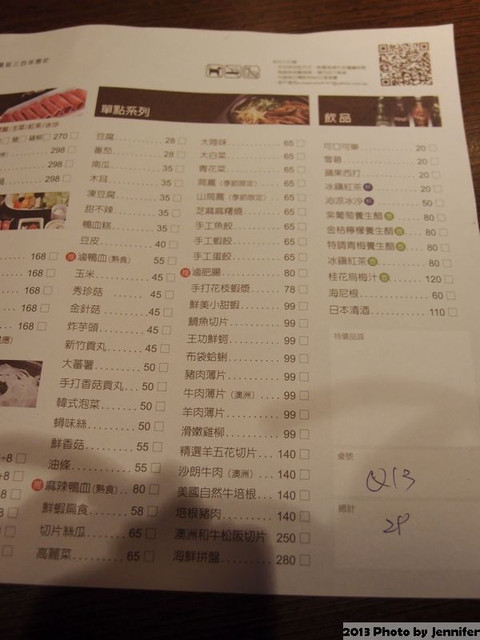 270
298
298
298
168
168
168
168
+8
+8
單點系列
豆腐 28
番茄 28
南瓜 35
木耳 35
凍豆腐 35
甜不辣 35
鴨血糕 35
豆皮 40
滷鴨血(熱食) 55
玉米 45
秀珍菇 45
金針菇 45
炸芋頭 45
新竹貢丸 45
大蕃薯 50
手打香菇貢丸 50
韓式泡菜 50
蟳味絲 50
鮮香菇 55
油條 55
麻辣鴨血(熱食) 80
鮮蝦扁食 58
切片絲瓜 65
高麗菜 65
大陸妹 65
大白菜 65
青花菜 65
茼蒿(季節限定) 65
山茼蒿(季節限定) 65
芝麻麻糬燒 65
手工魚餃 65
手工蝦餃 65
手工蛋餃 65
滷肥腸 80
手打花枝蝦漿 78
鮮美小甜蝦 99
鯛魚切片 99
王功鮮蚵 99
布袋蛤蜊 99
豬肉薄片 99
牛肉薄片(澳洲) 99
羊肉薄片 99
滑嫩雞柳 99
精選羊五花切片 140
沙朗牛肉(澳洲) 140
美國自然牛培根 140
培根豬肉 140
澳洲和牛松阪切片 250
海鮮拼盤 280
飲品
可口可樂 20
雪碧 20
蘋果西打 20
冰鎮紅茶 20
沁涼冰沙 50
紫葡萄養生醋 80
金桔檸檬養生醋 80
特調青梅養生醋 80
冰鎮紅茶 80
桂花烏梅汁 120
海尼根 60
日本清酒 110
特價品區
桌號
Q13
總計
2P
2013 Photo by Jennifer